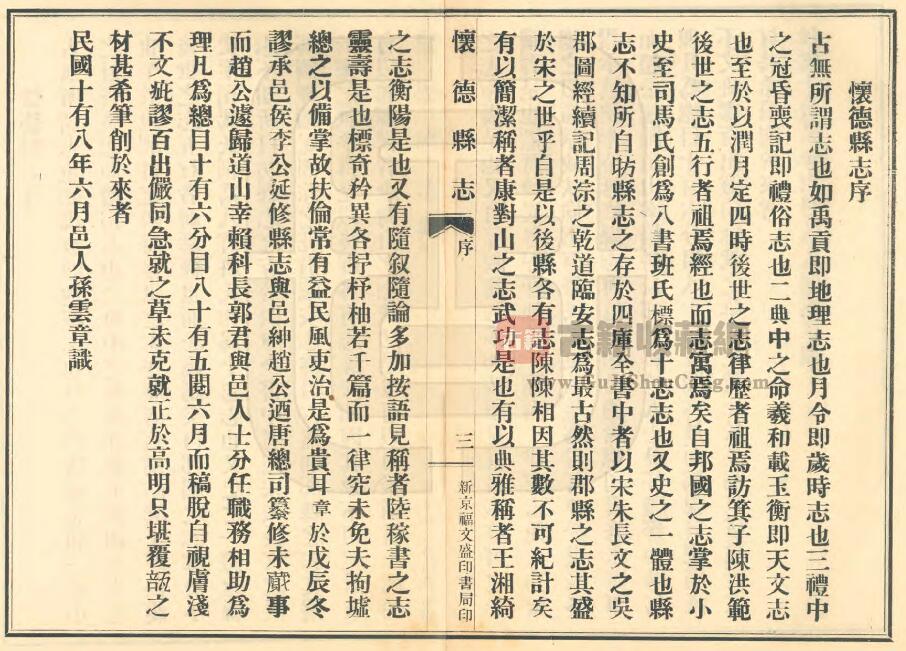 懷德縣志序
古無所謂志也如禹貢即地理志也月令即歲時志也三禮中
之冠昏喪記即禮俗志也二典中之命羲和載玉衡即天文志
也至於以潤月定四時後世之志律歷者祖焉訪箕子陳洪範
後世之志五行者祖焉經也而志寓焉矣自邦國之志掌於小
史至司馬氏創為八書班氏標為十志志也又史之一體也縣
志不知所自昉縣志之存於四庫全書中者以宋朱長文之吳
郡圖經續記周淙之乾道臨安志為最古然則郡縣之志其盛
於宋之世乎自是以後縣各有志陳陳相因其數不可紀計矣
有以簡潔稱者康對山之志武功是也有以典雅稱者王湘綺
懷德縣志
序
三
新京福文盛印書局印
之志衡陽是也又有隨叙隨論多加按語見稱者陸稼書之志
靈壽是也標奇矜異各抒杼柚若千篇而一律究未免夫拘墟
總之以備掌故扶倫常有益民風吏治是為貴耳章於戊辰冬
謬承邑侯李公延修縣志與邑紳趙公迺唐總司纂修未蕆事
而趙公遽歸道山幸賴科長郭君與邑人士分任職務相助為
理凡為總目十有六分目八十有五閱六月而稿脫自視膚淺
不文疵謬百出儼同急就之草未克就正於高明只堪覆瓿之
材甚希筆創於來者
民國十有八年六月邑人孫雲章識
古籍收藏網
www.GuJiShouCang.com